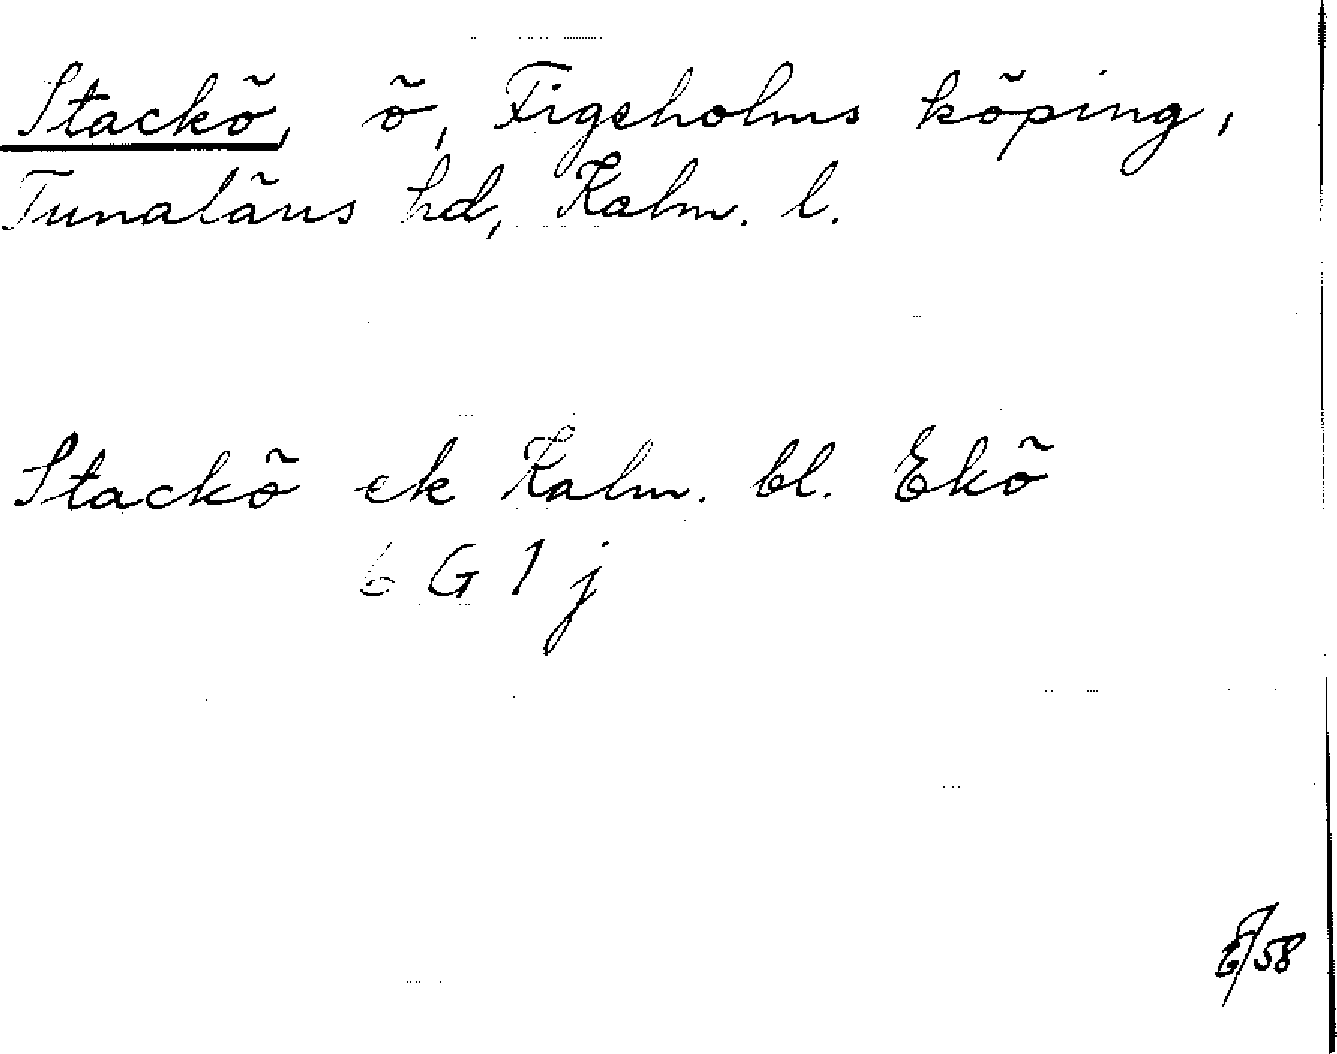 Stackö, ö, Figeholms köping,
Tunaläns hd, Kalm. l.
Stackö ek Kalm. bl. Ekö
6 G 1 j
58